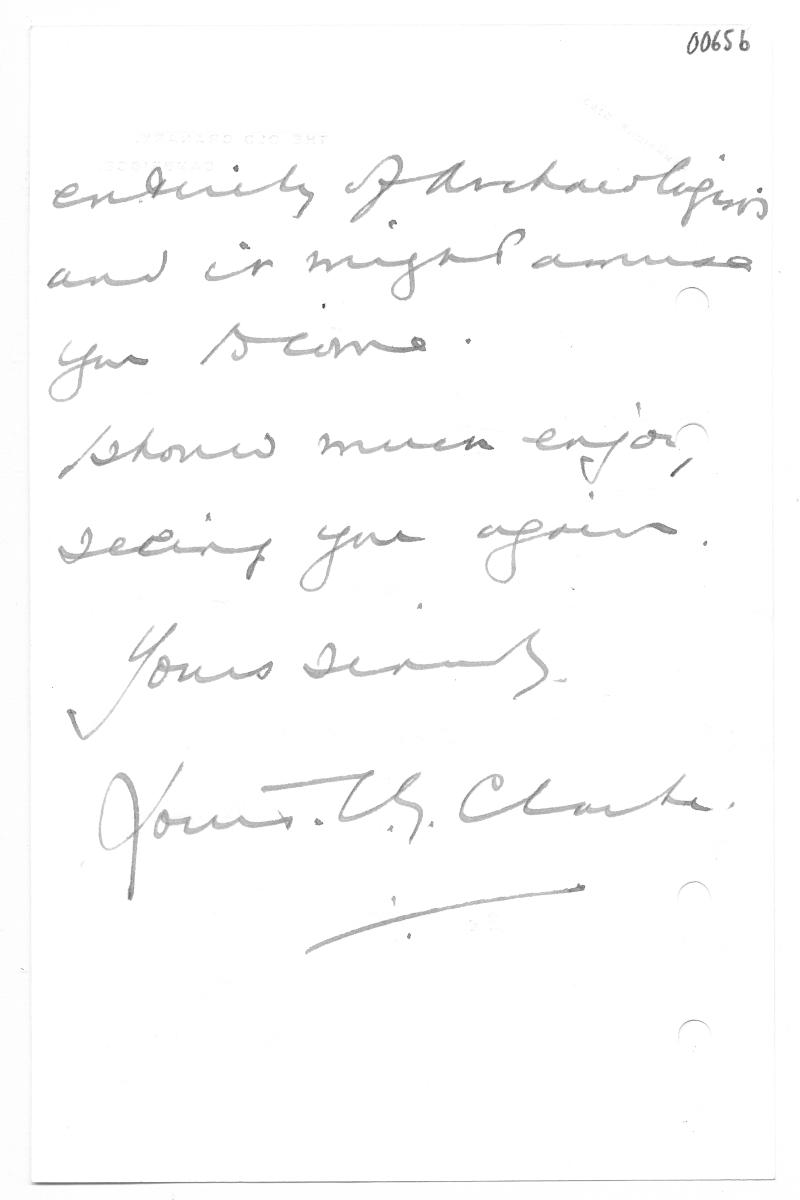 00656
entirely of Archaeologists
and it might amuse
you to come.
should much enjoy
seeing you again.
Yours sincerely
Louis. C. G. Clarke.